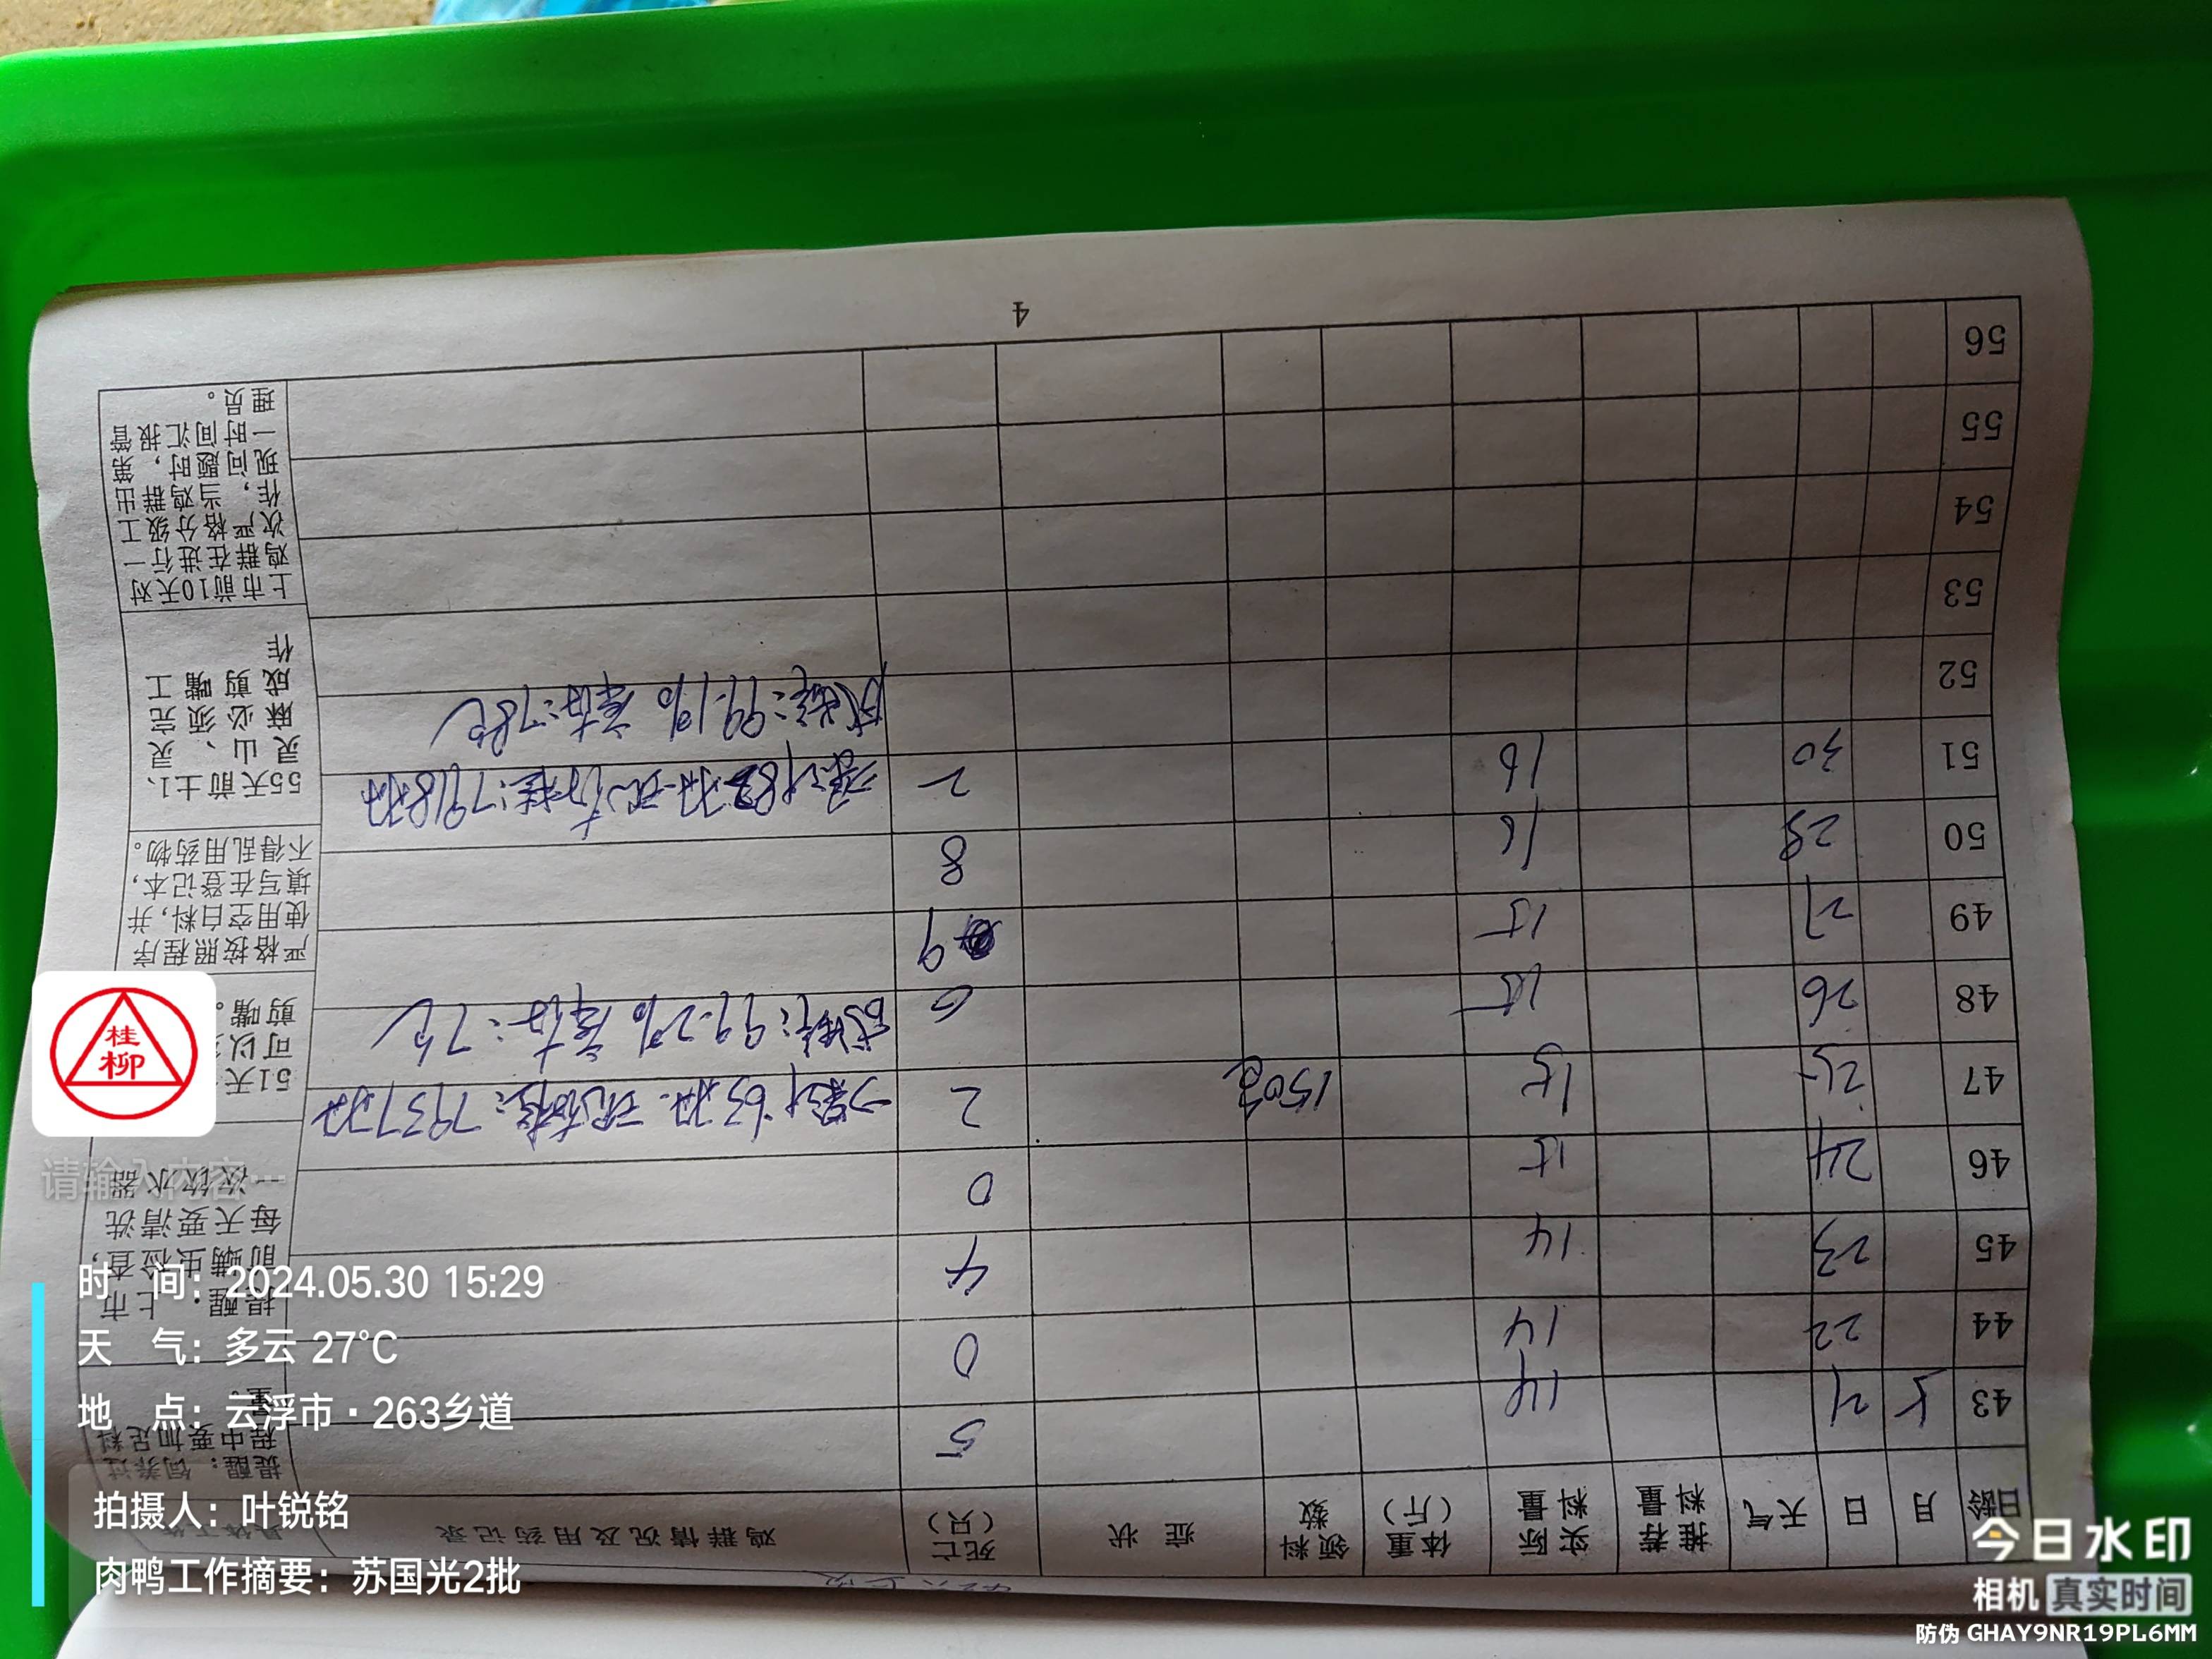 日龄 月 日 天气 推荐料量 实际料量 体重(斤) 领料数 症 状 死亡(只) 鸡群情况及用药记录
43 5 21 14 5
44 22 14 0
45 23 14 4
46 24 15 0
47 25 15 150包 2 累计63只 现存栏:7937只
48 26 15 6 成活率:99.2% 库存:7包
49 27 15 9
50 28 16 8
51 30 16 2 累计82只 现存栏:7918只
52 成活率:99.1% 库存:78包
53
54
55
56
提醒:饲养过
程中要加足料
提醒:上市
前蛔虫检查,
每天要清洗
一次饮水器
51天
可以
剪嘴。
严格按照程序
使用空白料,并
填写在登记本,
不得乱用药物。
55天前土1、
灵山、灵
麻必须完
成剪嘴工
作
上市前10天对
鸡群在进行一
次严格分级工
作,当鸡群出
现问题时,第
一时间汇报管
理员。
4
桂柳
请输入内容...
时 间:2024.05.30 15:29
天 气:多云 27°C
地 点:云浮市·263乡道
拍摄人:叶锐铭
肉鸭工作摘要:苏国光2批
今日水印
相机 真实时间
防伪 GHAY9NR19PL6MM